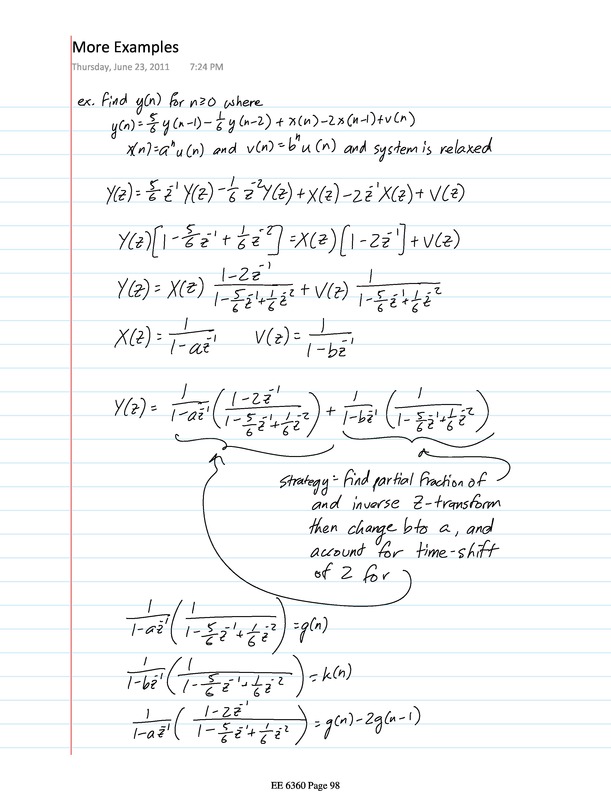 More Examples
Thursday, June 23, 2011 7:24 PM
ex. Find y(n) for n≥0 where
y(n)=5/6 y(n-1)-1/6 y(n-2)+x(n)-2x(n-1)+v(n)
x(n)=aⁿu(n) and v(n)=bⁿu(n) and system is relaxed
Y(z)=5/6 z⁻¹Y(z)-1/6 z⁻²Y(z)+X(z)-2z⁻¹X(z)+V(z)
Y(z)[1-5/6 z⁻¹+1/6 z⁻²]=X(z)[1-2z⁻¹]+V(z)
Y(z)=X(z) (1-2z⁻¹)/(1-5/6 z⁻¹+1/6 z⁻²) + V(z) 1/(1-5/6 z⁻¹+1/6 z⁻²)
X(z)=1/(1-az⁻¹) V(z)=1/(1-bz⁻¹)
Y(z)= 1/(1-az⁻¹) ((1-2z⁻¹)/(1-5/6 z⁻¹+1/6 z⁻²)) + 1/(1-bz⁻¹) (1/(1-5/6 z⁻¹+1/6 z⁻²))
Strategy = find partial fraction of
and inverse Z-transform
then change b to a, and
account for time-shift
of 2 for
1/(1-az⁻¹) (1/(1-5/6 z⁻¹+1/6 z⁻²)) = g(n)
1/(1-bz⁻¹) (1/(1-5/6 z⁻¹+1/6 z⁻²)) = k(n)
1/(1-az⁻¹) ((1-2z⁻¹)/(1-5/6 z⁻¹+1/6 z⁻²)) = g(n)-2g(n-1)
EE 6360 Page 98